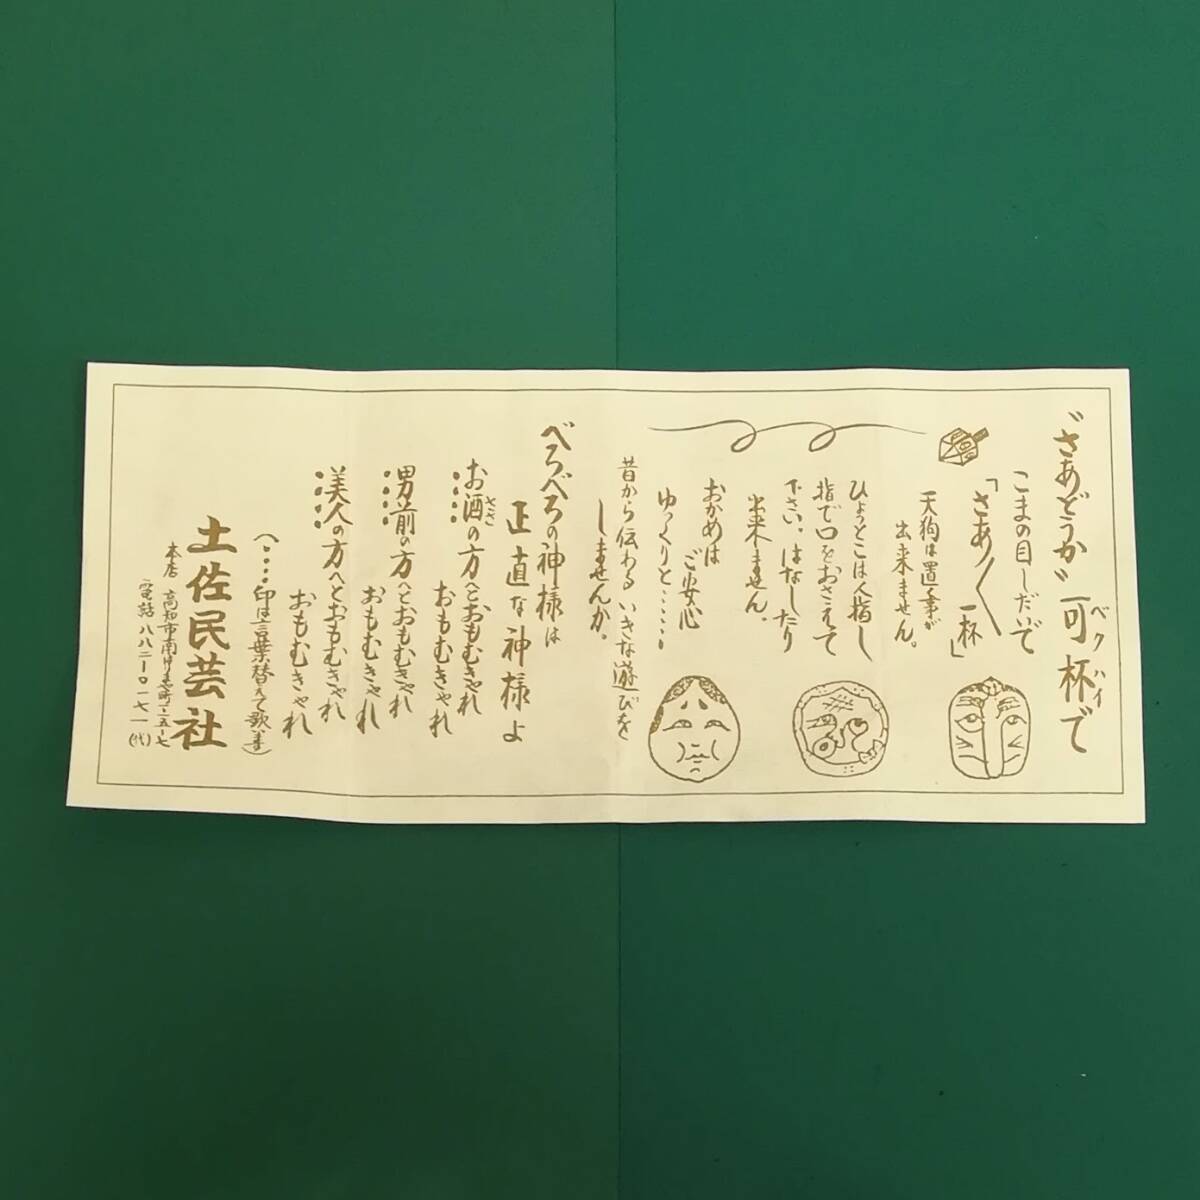 "さあどうか"可杯で
ベクハイ
こまの目しだいで
「さあ〱一杯」
天狗は置く事が
出来ません。
ひょっとこは人指し
指で口をおさえて
下さい。はなしたり
出来ません。
おかめは
ご安心
ゆっくりと……
昔から伝わるいきな遊びを
しませんか。
べろべろの神様は
正直な神様よ
お酒の方へとおもむきゃれ
ささ
おもむきゃれ
男前の方へとおもむきゃれ
おもむきゃれ
美人の方へとおもむきゃれ
おもむきゃれ
(、、、、印は言葉替えて歌う事)
土佐民芸社
本店 高知市南
電話 八八二-〇一七一(代)